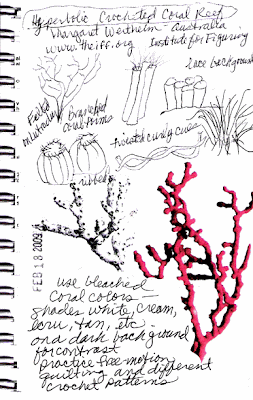 Hyperbolic Crocheted Coral Reef
Margaret Wertheim Australia
www.theiff.org Institute for Figuring
lace background
Felted
Branched
coral forms
twisted curing
ribbed
FEB 18 2009
use bleached
coral colors —
shades white, cream,
ecru, tan, etc
on a dark background
for contrast
practice free motion
quilting and different
crochet patterns